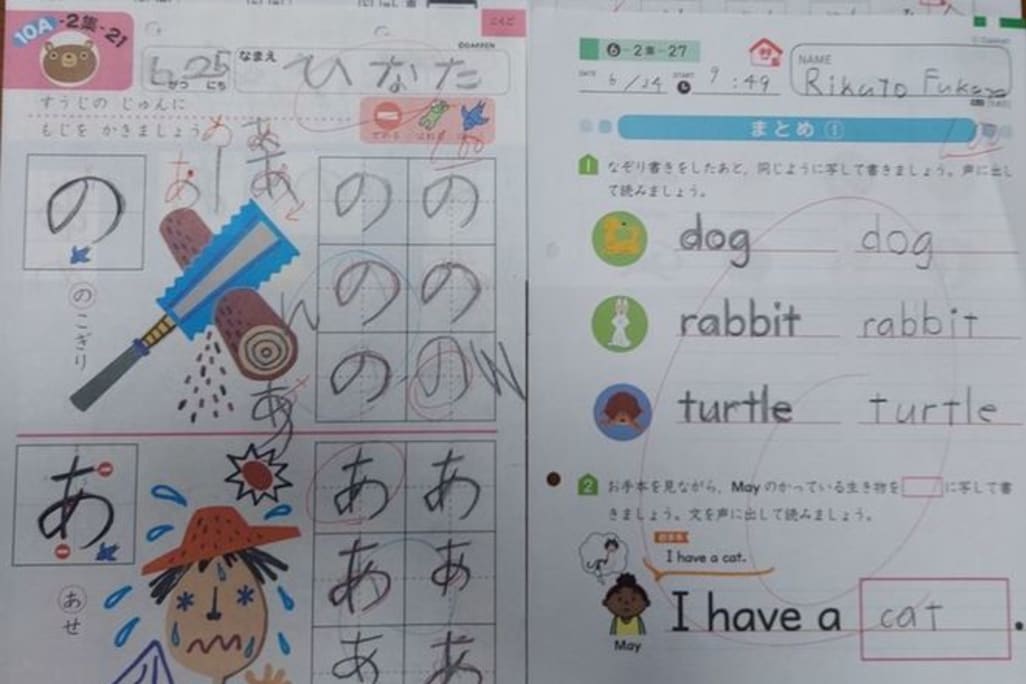 10A-2集-21
こくご
©GAKKEN
6がつ 25にち
なまえ ひなた
すうじの じゅんに
もじを かきましょう
100
の
の の
の の
の の
のこぎり
あ
あ
あ
あ
あ
あ あ
あ あ
あ あ
あせ
6-2集-27
DATE 6/24 START 9:49
NAME
Rikuto
まとめ①
100
1 なぞり書きをしたあと，同じように写して書きましょう。声に出し
て読みましょう。
dog dog
rabbit rabbit
turtle turtle
2 お手本を見ながら，Mayのかっている生き物を に写して書
きましょう。文を声に出して読みましょう。
お手本
I have a cat.
I have a cat.
May